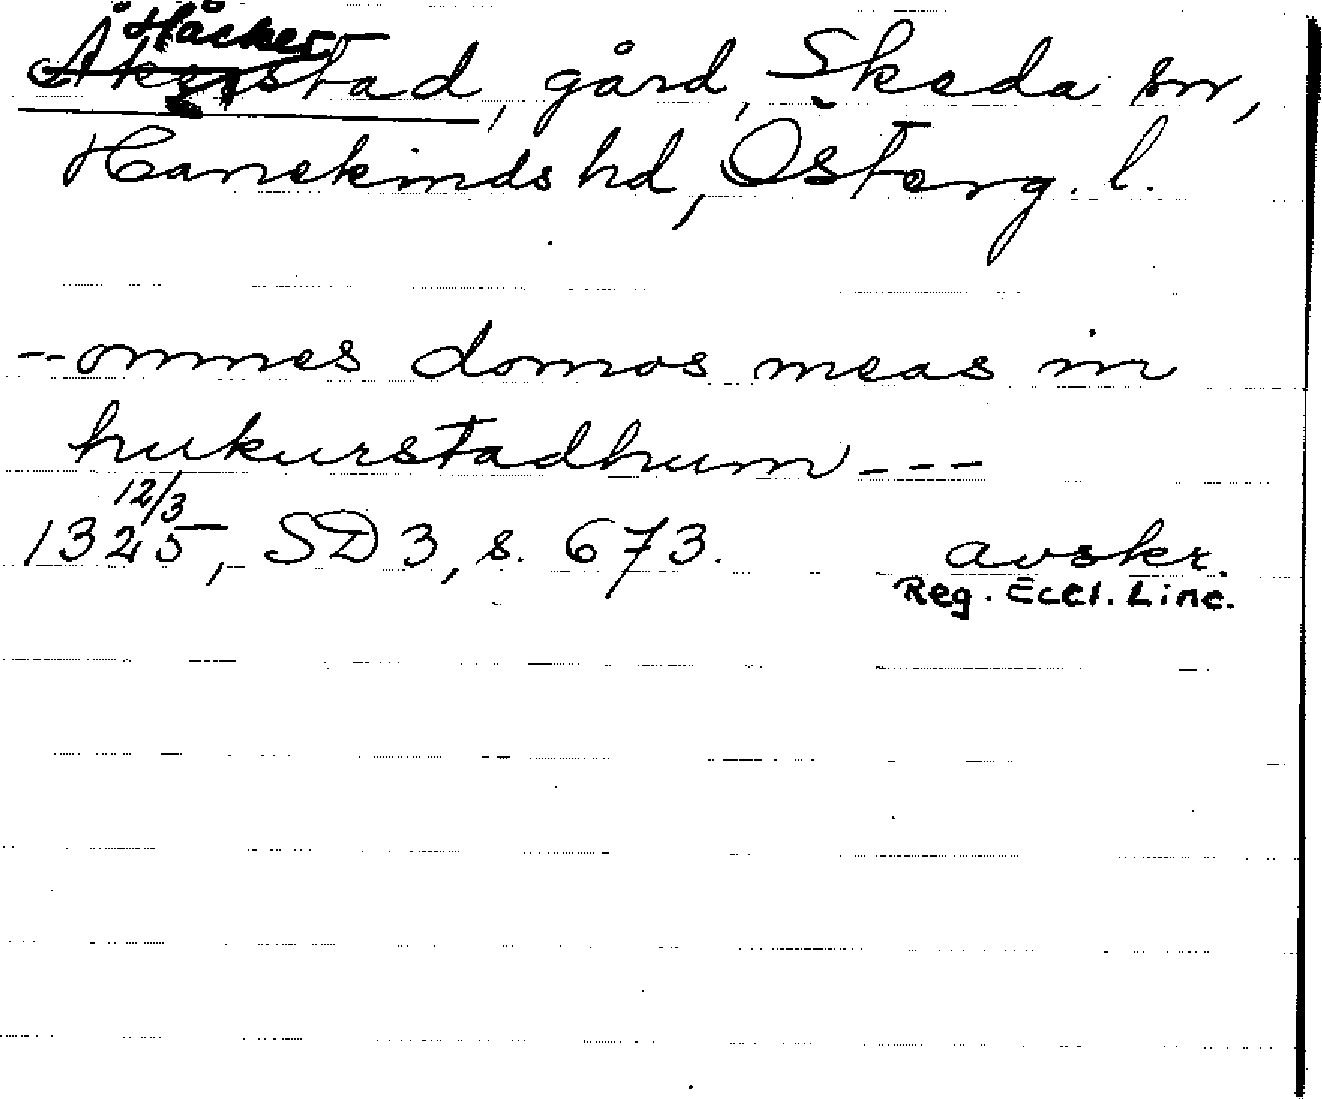 Håcker-
Åkerstad, gård, Skeda sn,
Hanekinds hd, Österg. l.
--omnes domos meas in
hukurstadhum---
12/3
1325, SD 3, s. 673. avskr.
Reg. Eccl. Linc.